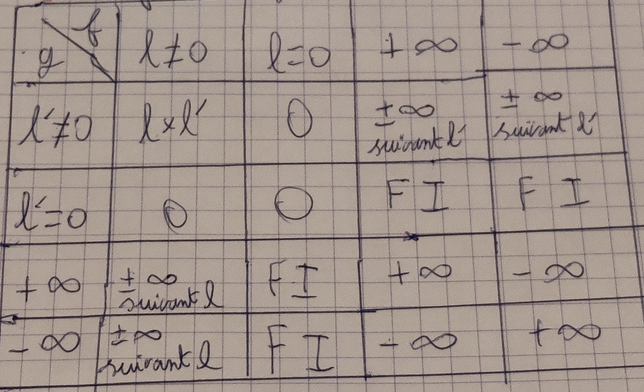 g f l≠0 l=0 +∞ -∞
l'≠0 l×l' 0 ±∞ suivant l' ±∞ suivant l'
l'=0 0 0 F I F I
+∞ ±∞ suivant l F I +∞ -∞
-∞ ±∞ suivant l F I -∞ +∞